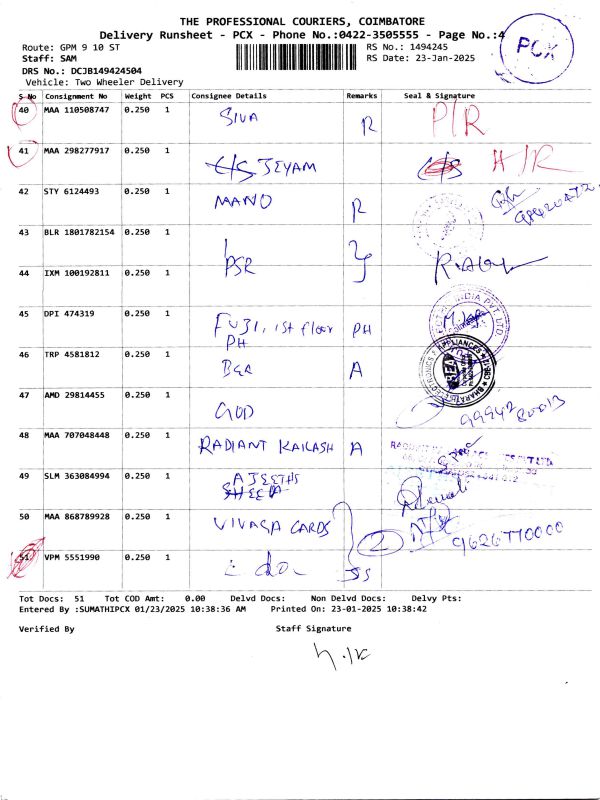 THE PROFESSIONAL COURIERS, COIMBATORE
Delivery Runsheet - PCX - Phone No.:0422-3505555 - Page No.:4
PCX
Route: GPM 9 10 ST
RS No.: 1494245
Staff: SAM
RS Date: 23-Jan-2025
DRS No.: DCJB149424504
Vehicle: Two Wheeler Delivery
S No Consignment No Weight PCS Consignee Details Remarks Seal & Signature
40 MAA 110508747 0.250 1 SIVA R P/R
41 MAA 298277917 0.250 1 C/S JEYAM C/S
42 STY 6124493 0.250 1 MANO R
43 BLR 1801782154 0.250 1
44 IXM 100192811 0.250 1 PSR
45 DPI 474319 0.250 1 FUJI, 1st floor PH
PH
46 TRP 4581812 0.250 1 A
47 AMD 29814455 0.250 1 GOD
48 MAA 707048448 0.250 1 RADIANT KAILASH A
49 SLM 363084994 0.250 1 AJEETHS
50 MAA 868789928 0.250 1 VIVAGA CARDS 2 9626770000
51 VPM 5551990 0.250 1 do SS
Tot Docs: 51 Tot COD Amt: 0.00 Delvd Docs: Non Delvd Docs: Delvy Pts:
Entered By :SUMATHIPCX 01/23/2025 10:38:36 AM Printed On: 23-01-2025 10:38:42
Verified By Staff Signature